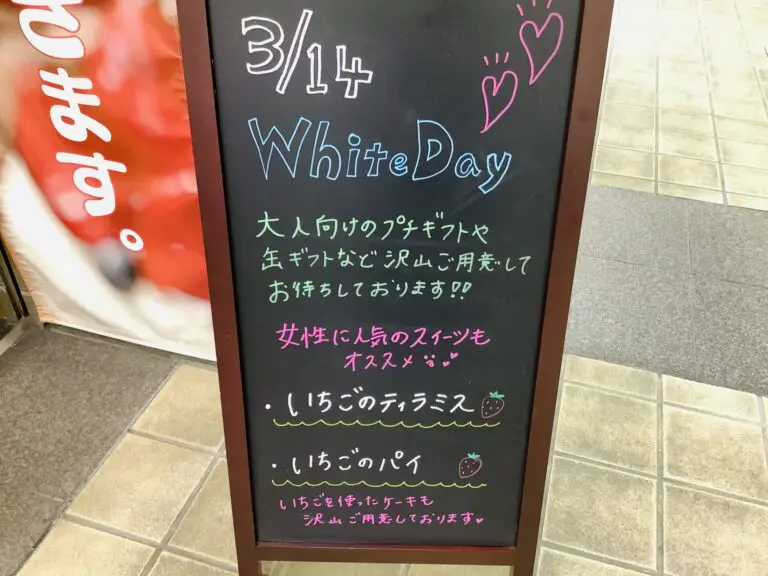 ざいます。
3/14
White Day
大人向けのプチギフトや
缶ギフトなど沢山ご用意して
お待ちしております!!
女性に人気のスイーツも
オススメ
・いちごのティラミス
・いちごのパイ
いちごを使ったケーキも
沢山ご用意しております